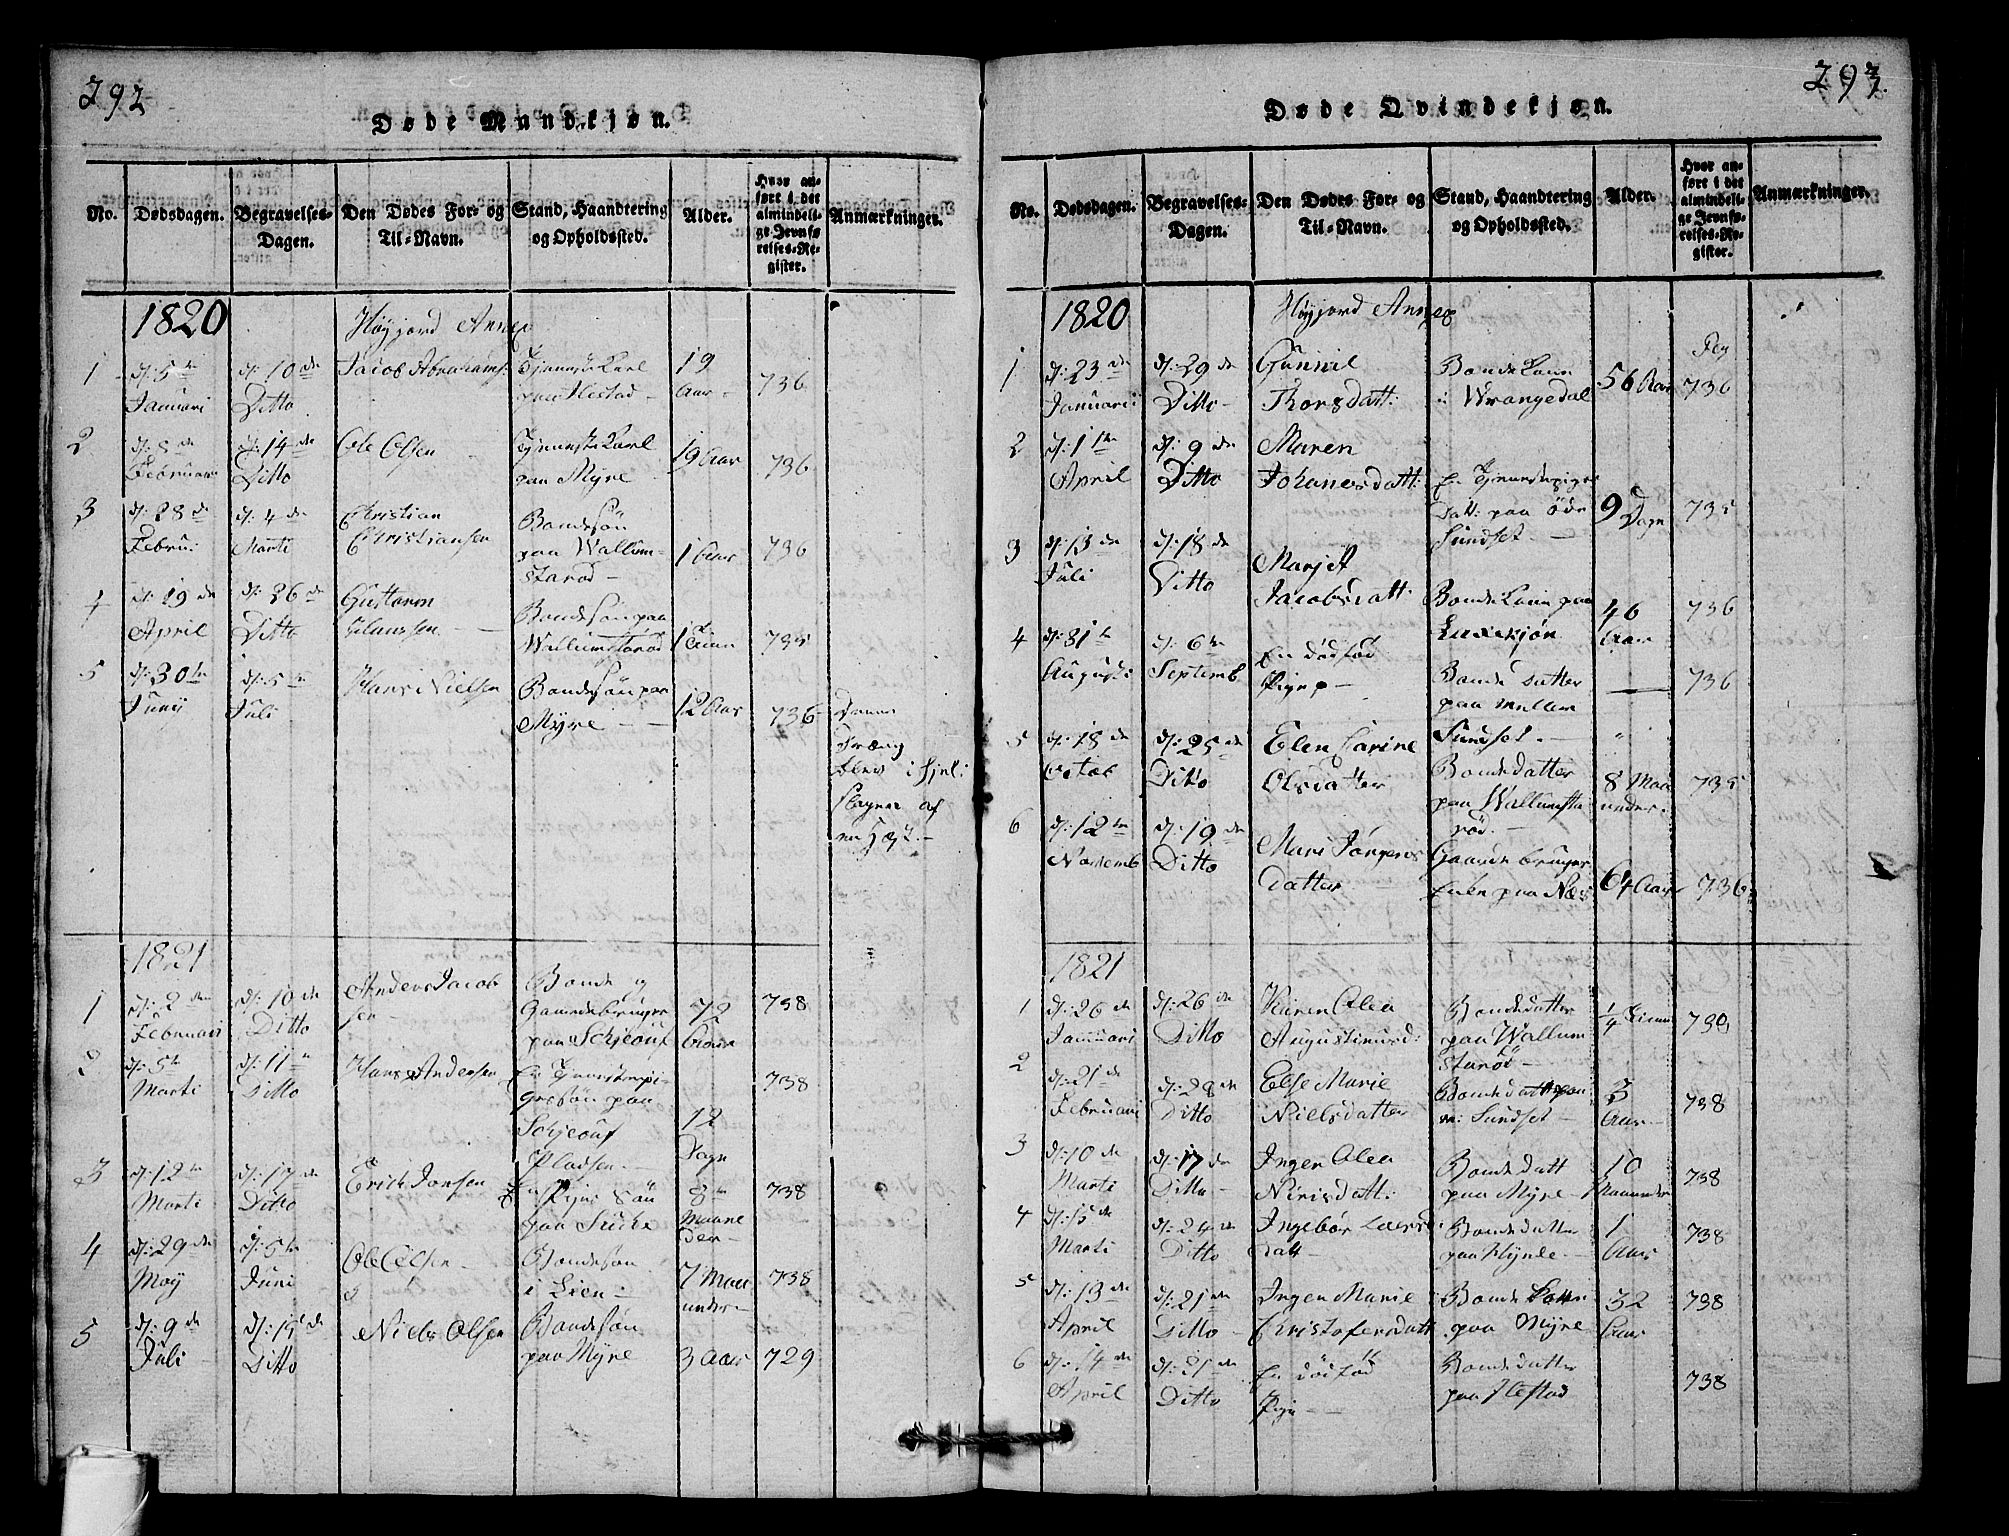 292
Døde Mandkjøn.
No.
Dødsdagen.
Begravelses-
Dagen.
Den Dødes For- og
Til-Navn.
Stand, Haandtering
og Opholdssted.
Alder.
Hvor an-
ført i det
almindeli-
ge Jevnfø-
relses-Re-
gister.
Anmærkninger.
1820
Høyjord Annex
1
d: 5te
Januari
d: 10de
Ditto
Jacob Abrahams:
Tjenniste Karl
paa Ilestad
19
Aar
736
2
d: 8de
Februari
d: 14de
Ditto
Ole Olsen
Tjenniste Karl
paa Myre
19 Aar
736
3
d: 28de
Februi
d: 4de
Marti
Christian
Christiansen
Bondesøn
paa Wallum-
starød
1 Aar
736
4
d: 19de
April
d: 26de
Ditto
Gustaven
Clausen
Bondesøn paa
Wallumstarød
735
5
d: 30te
Junij
d: 5te
Juli
Hans Nielsen
Bondesøn paa
Myre
12 Aar
736
Denne
Dræng
blev i hjel:
slagen af
en Hest.
1821
1
d: 2den
Februari
d: 10de
Ditto
Anders Jacob
sen
Bonde og
Gaardebruger
paa Schjeøuf
72
Aar
738
2
d: 5te
Marti
d: 11te
Ditto
Hans Andersen
En Tjennstepi-
gesøn paa
Schjeøuf
Pladsen.
12
Dage
738
3
d: 12te
Marti
d: 17de
Ditto
Erich Jonsen
søn
paa
8te
Maane
der
738
4
d: 29de
Moy
d: 5te
Juni
Ole Olsen
Bondesøn
i Lien
7 Maa
neder
738
5
d: 9de
Juli
d: 15de
Ditto
Niels Olsen
Bondesøn
paa Myre
3 Aar
729
293.
Døde Qvindekjøn.
No.
Dødsdagen.
Begravelses-
Dagen.
Den Dødes For- og
Til-Navn.
Stand, Haandtering
og Opholdssted.
Alder.
Hvor an-
ført i det
almindeli-
ge Jevnfø-
relses-Re-
gister.
Anmærkninger.
1820
Høyjord Annex
1
d: 23de
Januari
d: 29de
Ditto
Gunnil
Thorsdatt:
Bonde Kone
i Wrangedal
56 Aar
Pag
736
2
d: 1te
April
d: 9de
Ditto
Maren
Johanesdatt:
En Tjennstepiges
Datt: paa Øde
Sundset
9
Dage
735
3
d: 13de
Juli
d: 18de
Ditto
Marjet
Jacobsdatt:
Bonde Kone paa
46
Aar
736
4
d: 31te
Augusti
d: 6te
Septemb
En dødfød
Pige
Bonde datter
paa mellem
Sundset.
736
5
d: 18de
Octob
d: 25de
Ditto
Elen Carine
Olsdatter
Bondedatter
paa Wallumsta
rød.
8 Maa
neder.
735
6
d: 12te
Novemb
d: 19de
Ditto
Mari Jørgens
datter
Gaardebruger
Enke paa Næs
64 Aar
736
1821
1
d: 26de
Januari
d: 26de
Ditto
Karen Olea
Augustinusd:
Bondedatter
paa Wallum
starød
1/4
730
2
d: 21de
Februari
d: 28de
Ditto
Else Marie
Nielsdatter
Bondedatt paa
m: Sundset
3
Aar
738
3
d: 10de
Marti
d: 17de
Ditto
Ingen Olea
Nirisdatt:
Bondedatt
paa Myre
10
Maaneder
738
4
d: 15de
Marti
d: 24de
Ditto
Ingebor Laersd
datt
Bondedatter
paa Hynde
1
Aar
738
5
d: 13de
April
d: 21de
Ditto
Ingen Marie
Christofersdatt
Bonde Kone
paa Myre
32
Aar
738
6
d: 14de
April
d: 21de
Ditto
En dødfød
Pige
Bondedatter
paa Ilestad
738